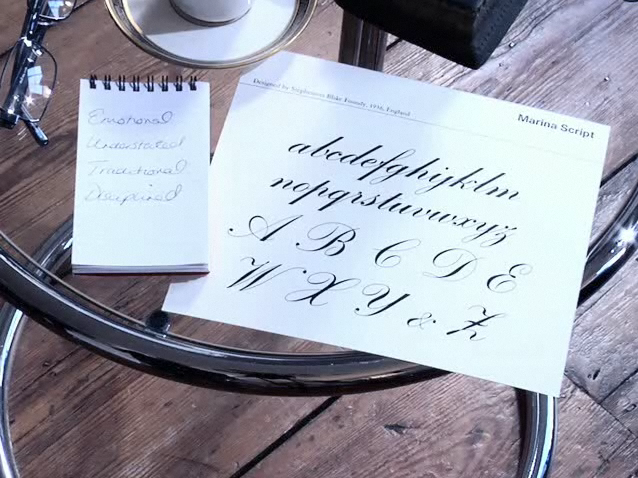 Emotional
Understated
Traditional
Disciplined
Designed by Stephenson Blake Foundry, 1936, England
Marina Script
abcdefghijklm
nopqrstuvwxyz
A B C D E
W X Y & Z